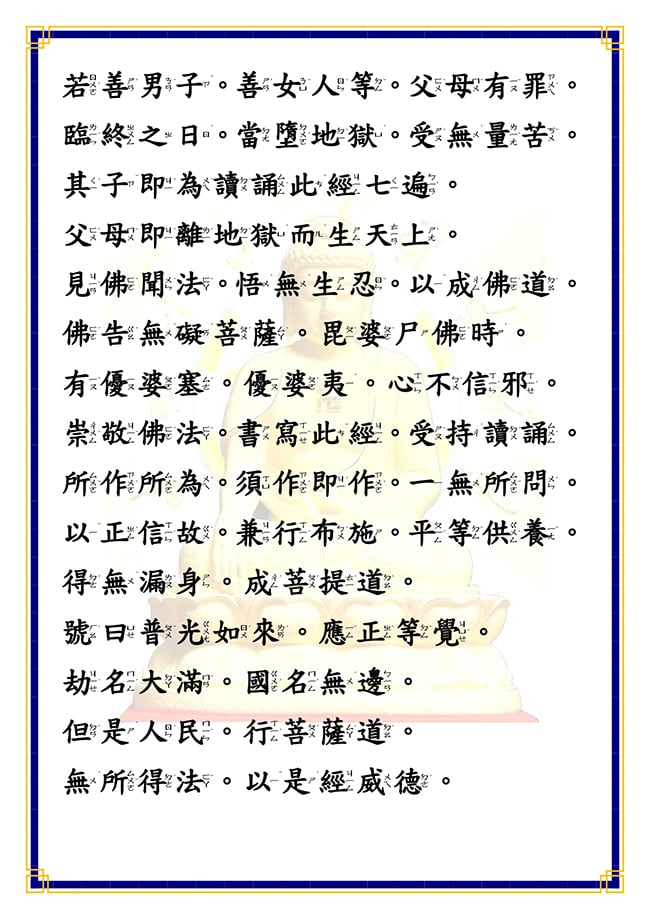 若善男子。善女人等。父母有罪。
臨終之日。當墮地獄。受無量苦。
其子即為讀誦此經七遍。
父母即離地獄而生天上。
見佛聞法。悟無生忍。以成佛道。
佛告無礙菩薩。毘婆尸佛時。
有優婆塞。優婆夷。心不信邪。
崇敬佛法。書寫此經。受持讀誦。
所作所為。須作即作。一無所問。
以正信故。兼行布施。平等供養。
得無漏身。成菩提道。
號曰普光如來。應正等覺。
劫名大滿。國名無邊。
但是人民。行菩薩道。
無所得法。以是經威德。